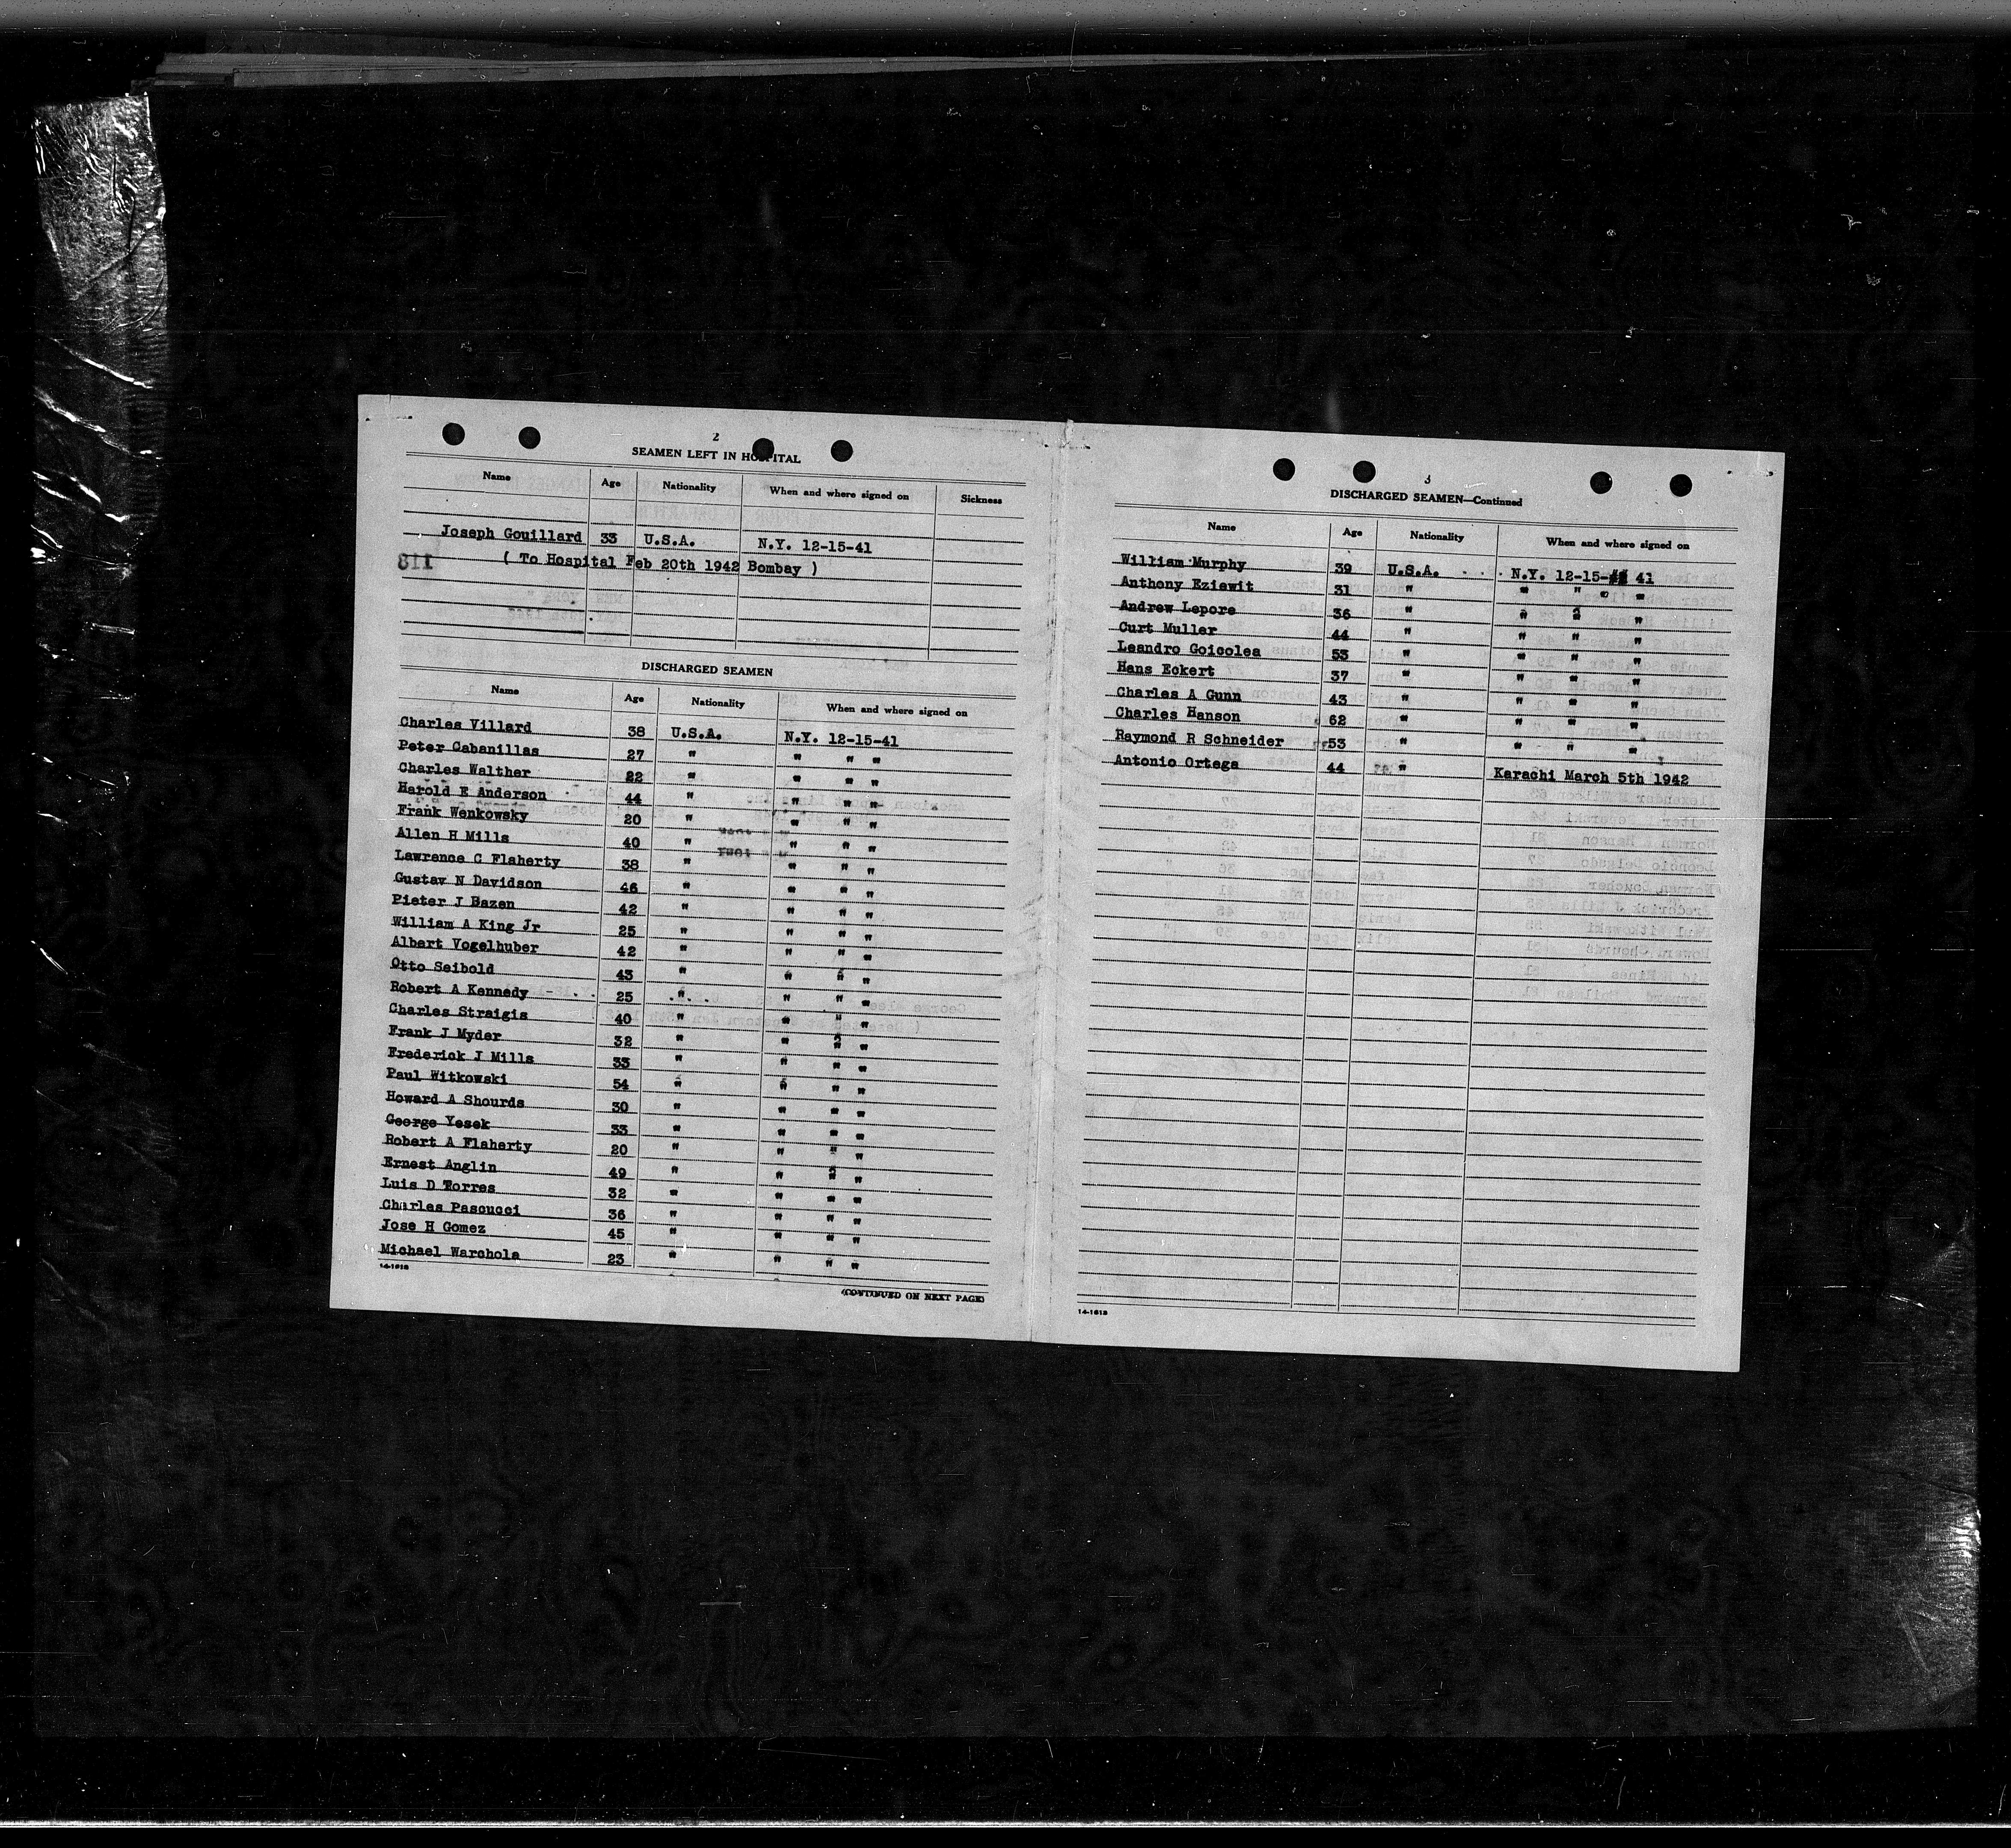 2
SEAMEN LEFT IN HOSPITAL
Name Age Nationality When and where signed on Sickness
Joseph Gouillard 33 U.S.A. N.Y. 12-15-41
( To Hospital Feb 20th 1942 Bombay )
118
DISCHARGED SEAMEN
Name Age Nationality When and where signed on
Charles Villard 38 U.S.A. N.Y. 12-15-41
Peter Cabanillas 27 " " " "
Charles Walther 22 " " " "
Harold E Anderson 44 " " " "
Frank Wenkowsky 20 " " " "
Allen H Mills 40 " " " "
Lawrence C Flaherty 38 " " " "
Gustav N Davidson 46 " " " "
Pieter J Bazen 42 " " " "
William A King Jr 25 " " " "
Albert Vogelhuber 42 " " " "
Otto Seibold 43 " " " "
Robert A Kennedy 25 " " " "
Charles Straigis 40 " " " "
Frank J Myder 32 " " " "
Frederick J Mills 33 " " " "
Paul Witkowski 54 " " " "
Howard A Shourds 30 " " " "
George Yesek 33 " " " "
Robert A Flaherty 20 " " " "
Ernest Anglin 49 " " " "
Luis D Torres 32 " " " "
Charles Pascucci 36 " " " "
Jose H Gomez 45 " " " "
Michael Warchola 23 " " " "
14-1612
(CONTINUED ON NEXT PAGE)
3
DISCHARGED SEAMEN—Continued
Name Age Nationality When and where signed on
William Murphy 39 U.S.A. N.Y. 12-15- 41
Anthony Eziewit 31 " " " " "
Andrew Lepore 36 " " " "
Curt Muller 44 " " " "
Leandro Goicolea 53 " " " "
Hans Eckert 37 " " " "
Charles A Gunn 43 " " " "
Charles Hanson 62 " " " "
Raymond R Schneider 53 " " " "
Antonio Ortega 44 " Karachi March 5th 1942
14-1612